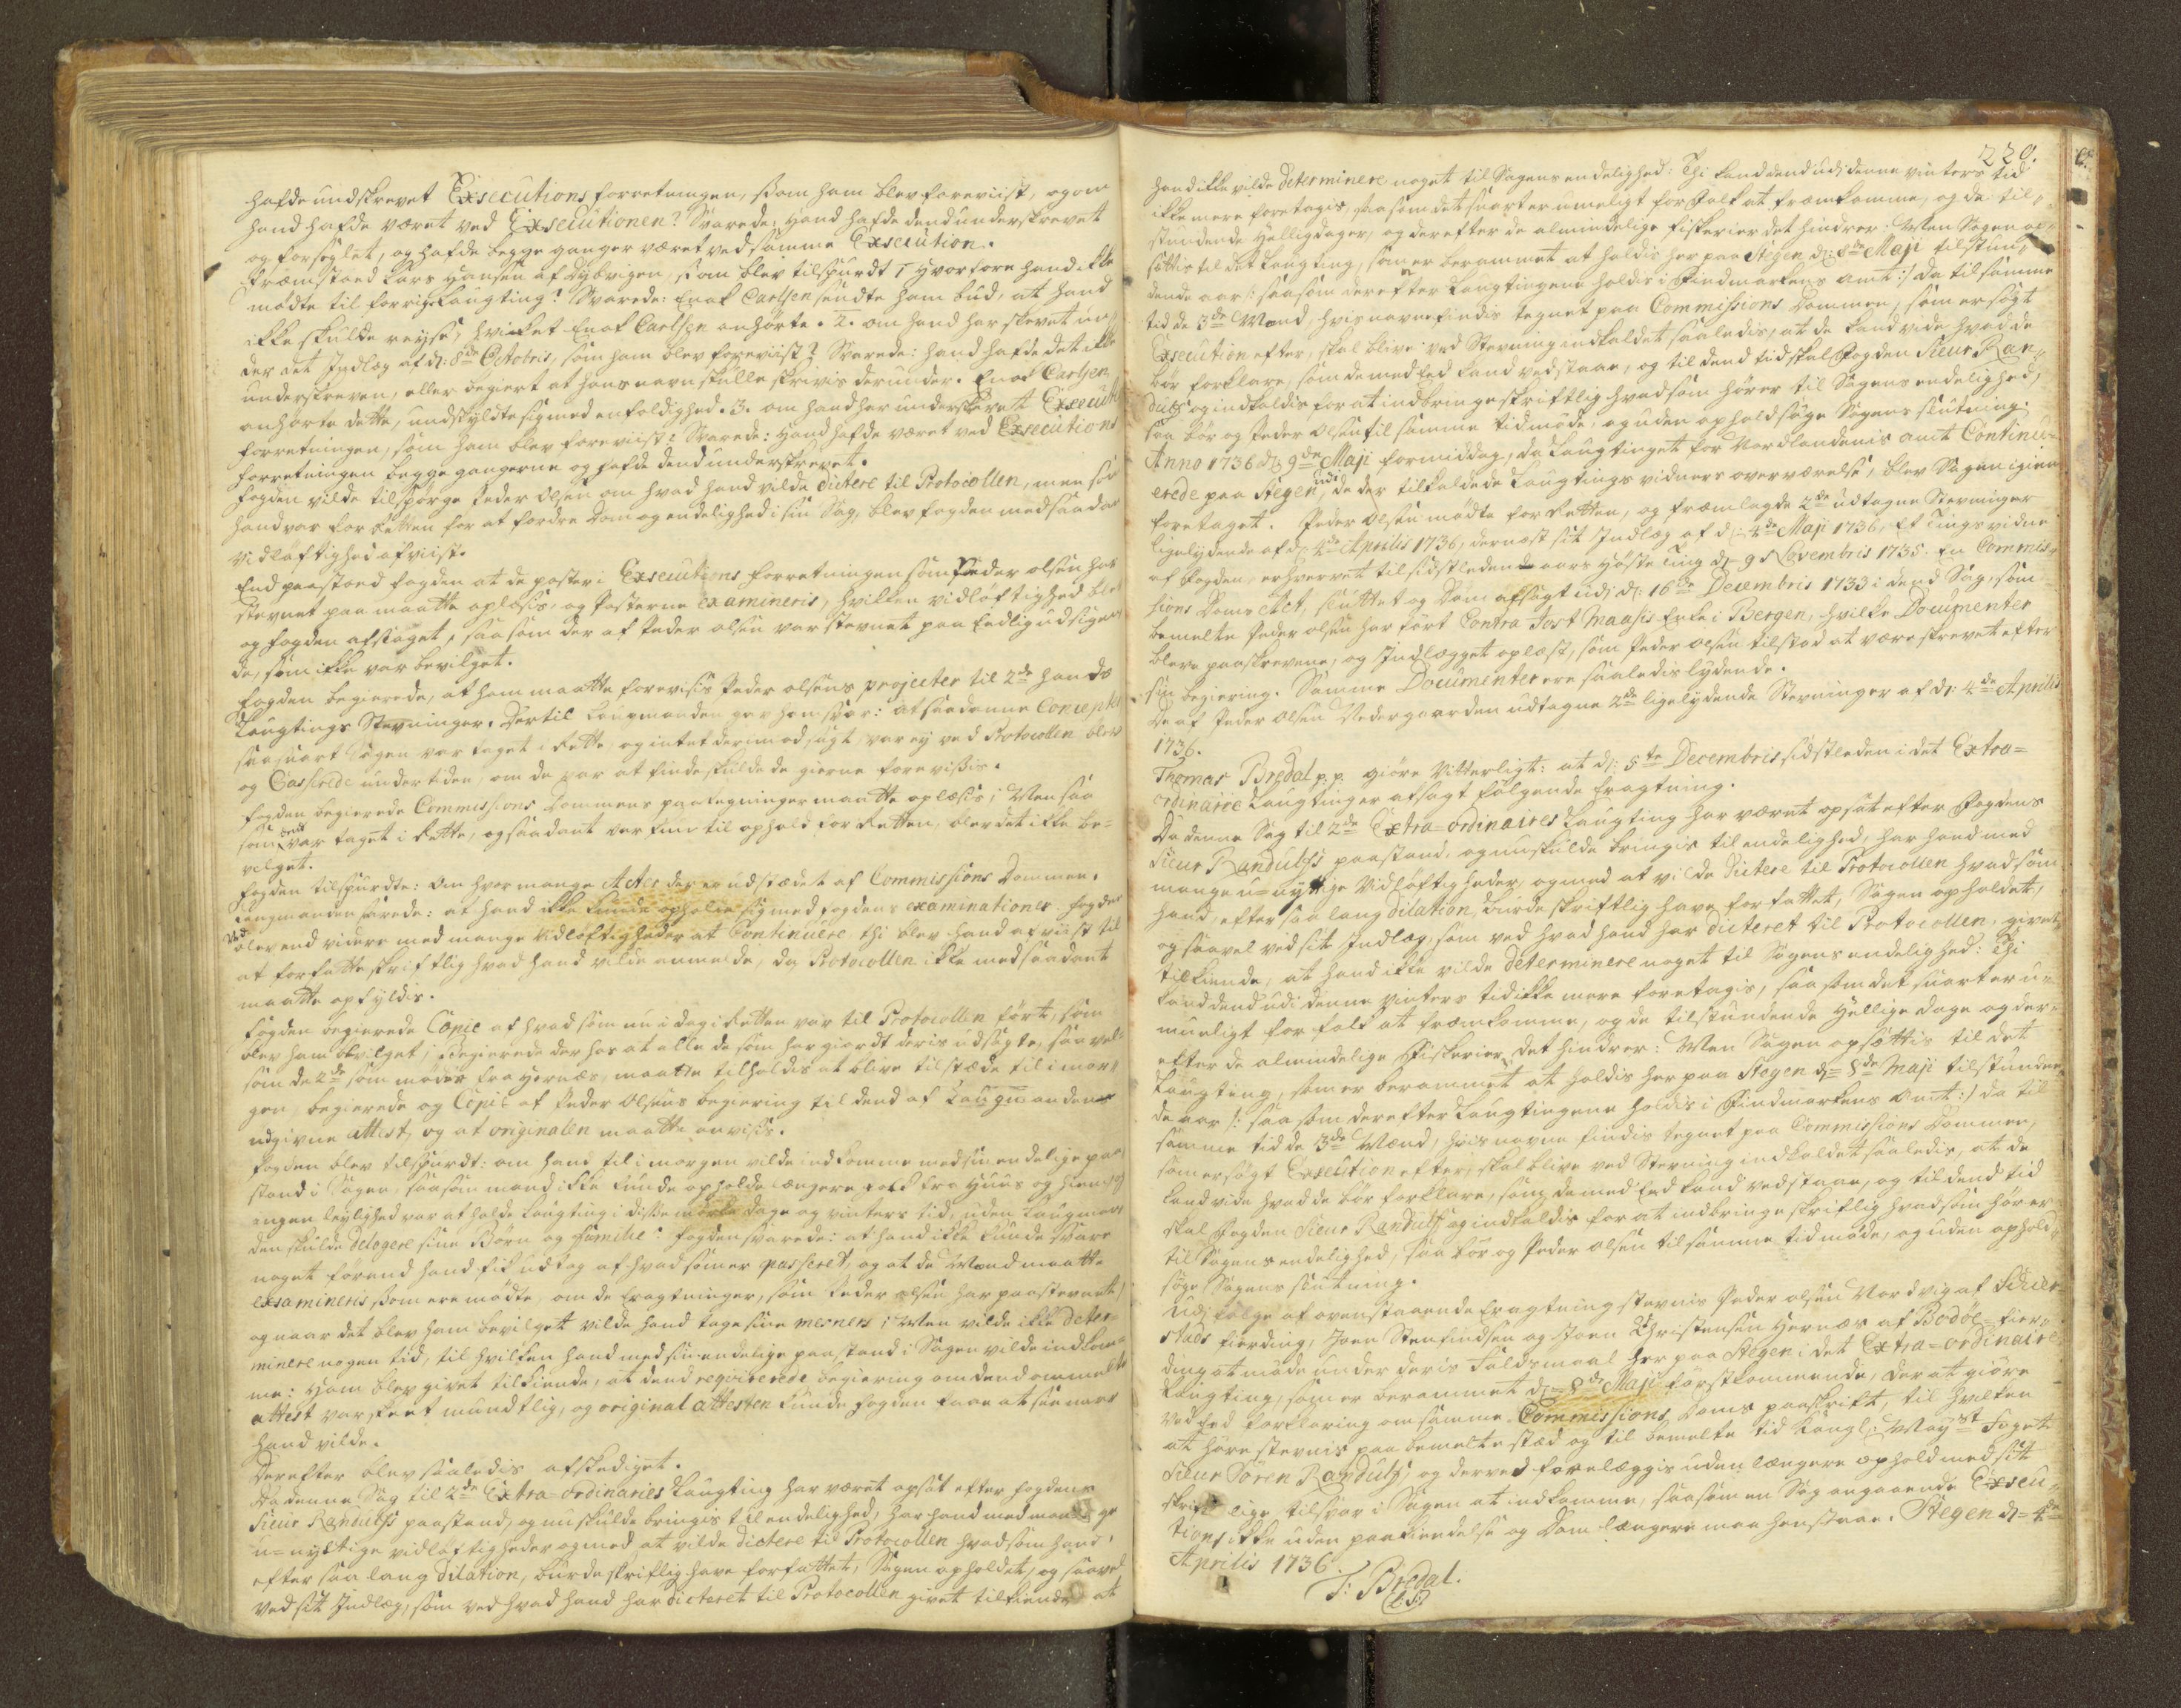 hafde undskrevet Exsecutions forretningen, som ham blev foreviist, og om
hand hafde været ved Exsecutionen? Svarede: Hand hafde dend underskrevet
og forseglet, og hafde begge ganger været ved samme Exsecution.
Fremstoed Lars Hansen af Dybvigen, som blev tilspurdt 1 Hvorfore hand ikke
mödte til forrige Laugting? Svarede: Enok Carlsen sendte ham bud, at hand
ikke skulde reyse, hvilket Enok Carlsen anhörte. 2. om hand har skrevet un-
der det Indlæg af d: 8de Octobris, som ham blev foreviist? Svarede: hand hafde det ikke
underskreven, eller begiert at hans navn skulle skrivis derunder. Enok Carlsen
anhörte dette, undskyldte sig med enfoldighed. 3. om hand har underskrevet Execut:
forretningen, som ham blev foreviist? Svarede: Hand hafde været ved Exsecutions
forretningen begge gangerne og hafde dend underskrevet.
Fogden vilde tilspörge Peder Olsen om hvad hand vilde dictere til Protocollen, men saa
hand var for Retten for at fordre Dom og endelighed i sin Sag, blev fogden med saadan
Vidlöftighed afviist.
End paastoed fogden at de poster i Exsecutions forretningen som Peder olsen har
stevnet paa maatte oplæsis, og Posterne examineris, hvilken vidlöftighed blev
og fogden afslaget, saasom der af Peder olsen var stevnet paa Eedlig udsigen-
de, som ikke var bevilget.
Fogden begierede, at ham maatte forevisis Peder olsens projecter til 2de hans
Laugtings Stevninger. Dertil Laugmanden gav ham svar: at saadanne Concepter
saasnart Sagen var taget i Rette, og intet derimod sagt, var ey ved Protocollen blev
og Casserede undertiden, om de var at finde skulde de gierne forevisis.
Fogden begierede Commissions Dommens paategninger maatte oplæsis; Men saa
som dend var taget i Rette, og saadant var kun til ophold for Retten, blev det ikke be-
vilget.
Fogden tilspurdte: Om hvor mange Acter der er udstædet af Commissions Dommen.
Laugmanden svarede: at hand ikke kunde opholde sig med fogdens examinationer. fogden
Vil
blev end videre med mange Vidlöftigheder at Continuere thi blev hand afviist til
at forfatte skriftlig hvad hand vilde anmelde, da Protocollen ikke med saadant
maatte opfyldis.
Fogden begierede Copie af hvad som nu i dag i Retten var til Protocollen fört, som
blev ham bevilget; Begierede der hos at alle de som har giordt deris udsigte, saavel
som de 2de som mödte fra Hernæs, maatte tilholdis at blive tilstæde til i mor-
gen, begierede og Copie af Peder Olsens begiering til dend af Laugmanden
udgivne attest, og at originalen maatte anvisis.
Fogden blev tilspurdt: om hand til i morgen vilde indkomme med sin endelige paa-
stand i Sagen, saasom mand ikke kunde opholde længere folk fra Huus og Hiem, og
ingen leylighed var at holde Laugting i disse mörke dage og vinters tid, uden Laugman-
den skulde delogere sine Börn og Familie? Fogden svarede: at hand ikke kunde svare
noget förend hand fik udtog af hvad som er passeret, og at de Mænd maatte
exsamineris som ere mödte, om de Eragtninger, som Peder olsen har paastevnet,
og naar det blev ham bevilget vilde hand tage sine mesures; Men vilde ikke deter-
minere nogen tid, til hvilken hand med sin endelige paastand i Sagen vilde indkom-
me: Ham blev givet tilkiende, at dend reqvirerede begiering om dend ommelte
attest var skeet mundtlig, og original attesten kunde fogden faae at see naar
hand vilde.
Derefter blev saaledis afskediget.
Da denne Sag til 2de Extra-ordinaries Laugting har været opsat efter fogdens
Sieur Randulfs paastand, og nu skulde bringis til endelighed, har hand med mange
u-nyttige vidlöftigheder og med at vilde dictere til Protocollen hvad som hand
efter saa lang Dilation, burde skriftlig have forfattet, Sagen opholdet, og saavel
ved sit Indlæg, som ved hvad hand har dicteret til Protocollen givet tilkiende at
220.
hand ikke vilde determinere noget til Sagens endelighed: Thi kand dend udi denne vinters tid
ikke mere foretagis, saasom det snart er umueligt for Folk at fremkomme, og de til-
stundende Helligdager, og derefter de almindelige fiskerier det hindrer: Men Sagen op-
sættis til det Laugting, som er berammet at holdis her paa Stegen, d: 8de Maji tilstun-
dende aar /: saasom derefter Laugtingene holdis i Findmarkens amt :/ da til samme
tid de 3de Mænd, hvis navne findis tegnet paa Commissions Dommen, som er sögt
Exsecution efter, skal blive ved Stevning indkaldet saaledis, at de kand vide hvad de
bör forklare, som de med Eed kand vedstaae, og til dend tid skal Fogden Sieur Ran-
dulf og indkaldis for at indbringe skriftlig hvad som hörer til Sagens endelighed,
saa bör og Peder Olsen til samme tid möde, og uden ophold söge Sagens slutning.
Anno 1736 d: 9de Maji formiddag, da Laugtinget for Nordlandenis amt Continu-
erede paa Stegen, udi de der tilkaldede Laugtings vidners overværelse, blev Sagen igien
foretaget. Peder olsen mödte for Retten, og fremlagde 2de udtagne Stevninger
ligelydende af d: 4de Aprilis 1736, dernæst sit Indlæg af d: 4de Maji 1736, Et Tings vidne
af Fogden, erhvervet til sidstleden aars Höste Ting d: 9 Novembris 1735. En Commis-
sions Doms Act, sluttet og Dom afsagt udj d: 16de Decembris 1733 i dend Sag, som
bemelte Peder olsen har fört Contra Jost Maasis Enke i Bergen, hvilke Documenter
bleve paaskrevene, og Indlægget oplæst, som Peder olsen tilstod at være skrevet efter
sin begiering. Samme Documenter ere saaledis lydende.
De af Peder olsen Nedergaarden udtagne 2de ligelydende Stevninger af d: 4de Aprilis
1736.
Thomas Bredal p. p. giöre Vitterligt: at d: 5te Decembris sidstleden i det Extra-
ordinaire Laugtinger afsagt fölgende Eragtning.
Da denne Sag til 2de Extra-ordinaires Laugting har været opsat efter Fogdens
Sieur Randulfs paastand, og nu skulde bringis til endelighed, har hand med
mange u-nyttige Vidlöftigheder, og med at vilde dictere til Protocollen hvad som
hand, efter saa lang dilation, burde skriftlig have forfattet, Sagen opholdet,
og saavel ved sit Indlæg, som ved hvad hand har dicteret til Protocollen, givet
tilkiende, at hand ikke vilde determinere noget til Sagens endelighed: Thi
kand dend udi denne Vinters tid ikke mere foretagis, saasom det snart er u-
mueligt for folk at fremkomme, og de tilstundende Hellige dage og der-
efter de almindelige Fiskerier det hindrer: Men Sagen opsættis til det
Laugting, som er berammet at holdis her paa Stegen d: 8de Maji tilstunden-
de aar /: saasom derefter Laugtingene holdis i Findmarkens Amt :/ da til
samme tid de 3de Mænd, hvis navne findis tegnet paa Commissions Dommen,
som er sögt Exsecution efter, skal blive ved Stevning indkaldet saaledis, at de
kand vide hvad de bör forklare, som de med Eed kand vedstaae, og til dend tid
skal Fogden Sieur Randulf og indkaldis for at indbringe skriftlig hvad som hörer
til Sagens endelighed, saa bör og Peder olsen til samme tid möde, og uden ophold
söge Sagens slutning.
Udj fölge af ovenstaaende Eragtning stevnis Peder olsen Nordvig af Skier-
stads fierding, Joen Steenfindsen og Joen Christensen Hernæs af Bodöe fier-
ding at möde under deris Faldsmaal her paa Stegen i det Extra-ordinaire
Laugting, som er berammet d: 8de Maji förstkommende, der at giöre
ved Eed forklaring om samme Commissions Doms paaskrift, til hvilken
at höre stevnis paa bemelte stæd og til bemelte tid Kongl: Mayst Foget
Sieur Sören Randulf, og derved forelæggis uden længere ophold med sit
skriftlige tilsvar i Sagen at indkomme, saasom en Sag angaaende Exsecu-
tions ikke uden paakiendelse og Dom længere maa henstaae. Stegen d: 4de
Aprilis 1736.
T: Bredal.
L: S: